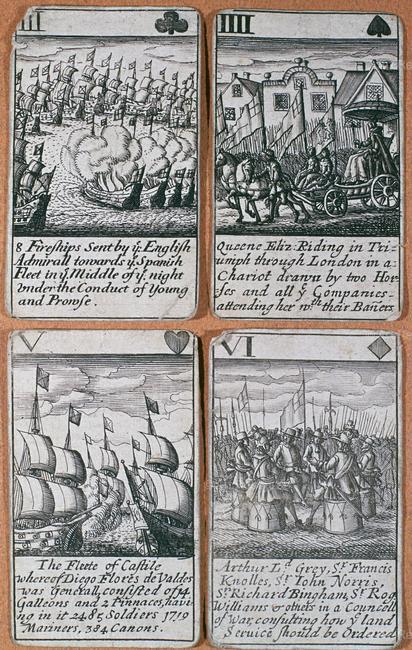 III
8 Fireships Sent by yͤ English
Admirall towards yͤ Spanish
Fleet in yͤ Middle of yͤ night
Vnder the Conduct of Young
and Prowse.
IIII
Queene Eliz: Riding in Tri=
umph through London in a
Chariot drawn by two Hor=
ses and all yͤ Companies
attending her wͭͪ their Baners
V
The Fleete of Castile
whereof Diego Flores de Valdes
was Generall, consisted of 14
Galleons and 2 Pinnaces, havi
ng in it 2485 Soldiers 1719
Mariners, 384 Canons.
VI
Arthur Lᵈ Grey, Sʳ Francis
Knolles, Sʳ Iohn Norris,
Sʳ Richard Bingham, Sʳ Rog
Williams & others in a Councell
of War, consulting how yͤ land
Service should be Ordered